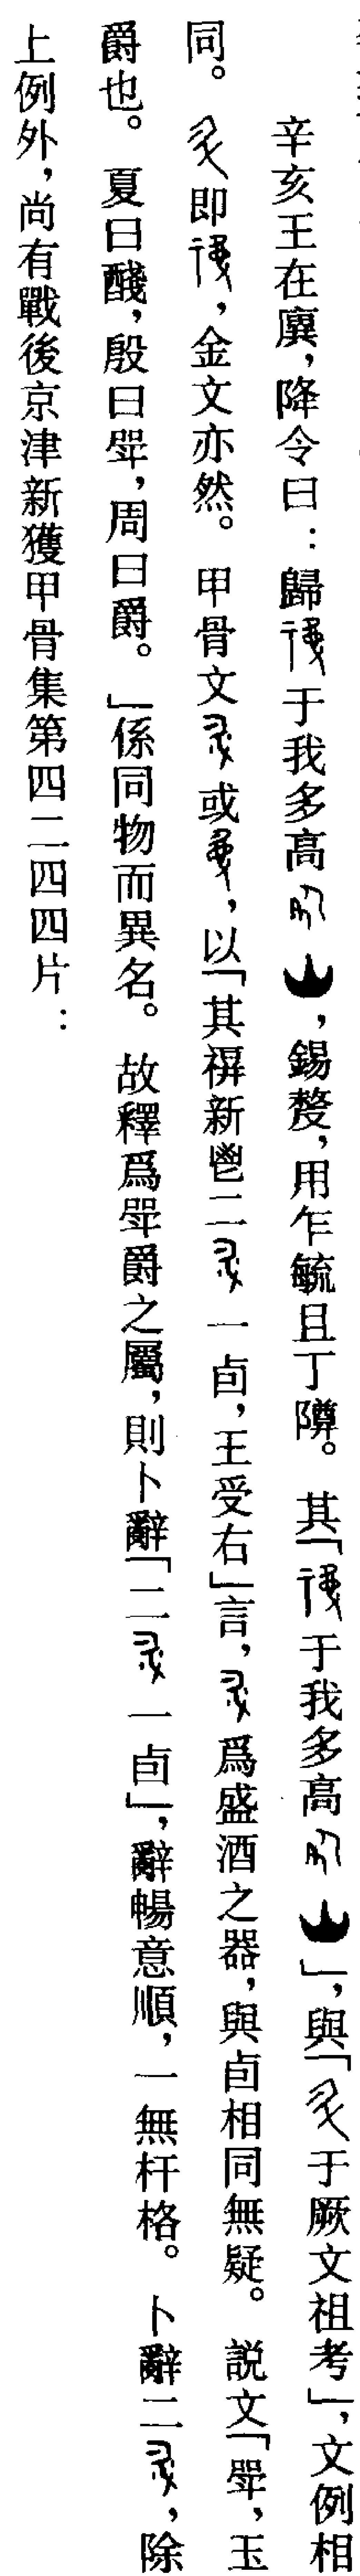 辛亥王在廙,降令曰:歸于我多高,錫𨤲,用乍毓且丁䵼。其「于我多高」,與「于厥文祖考」,文例相
同。即,金文亦然。甲骨文或,以「其䙬新鬯二一卣,王受右」言,爲盛酒之器,與卣相同無疑。説文「斝,玉
爵也。夏曰醆,殷曰斝,周曰爵。」係同物而異名。故釋爲斝爵之屬,則卜辭「二一卣」,辭暢意順,一無杆格。卜辭二,除
上例外,尚有戰後京津新獲甲骨集第四二四四片: